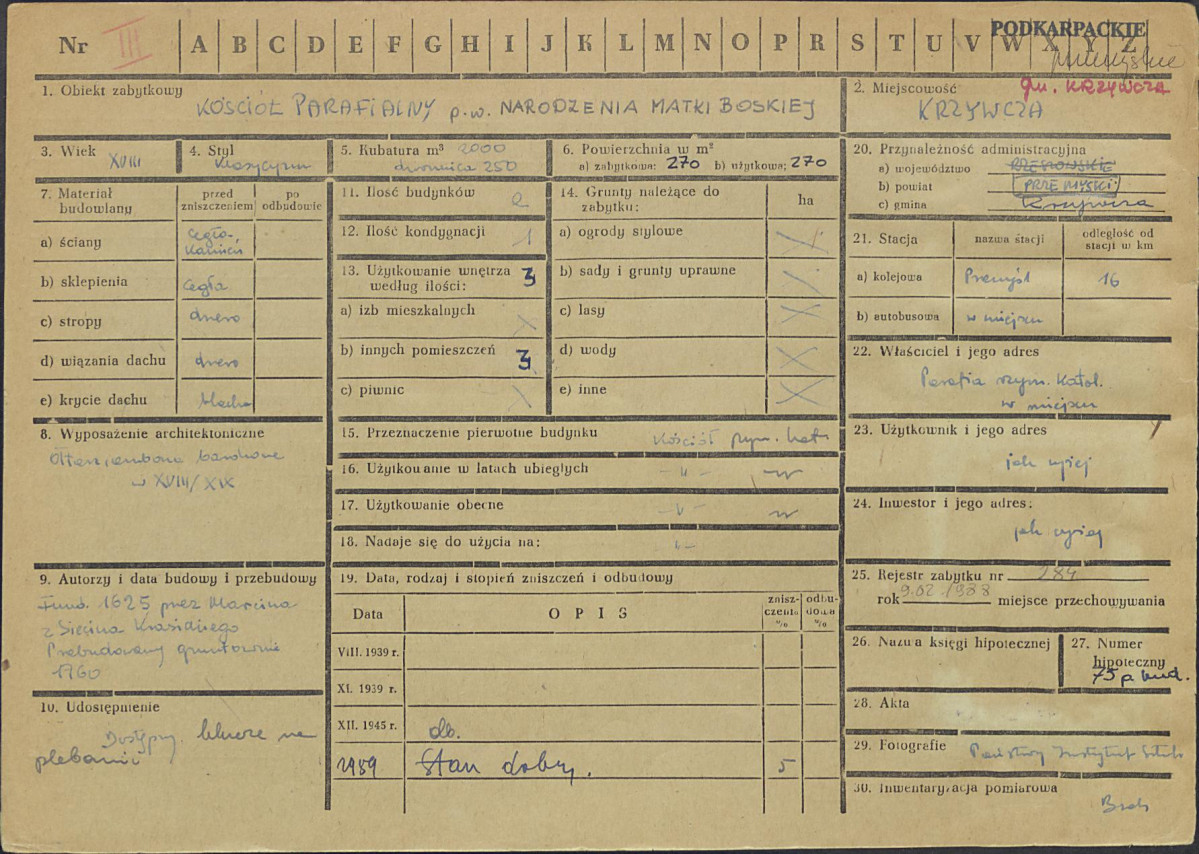 PODKARPACKIE
Nr III A B C D E F G H I J K L M N O P R S T U V W X Y Z
przemyskie
1. Obiekt zabytkowy
KOŚCIÓŁ PARAFIALNY p.w. NARODZENIA MATKI BOSKIEJ
2. Miejscowość gm. KRZYWCZA
KRZYWCZA
3. Wiek XVIII
4. Styl klasycyzm
5. Kubatura m³ 2000
dzwonnica 250
6. Powierzchnia w m²
a) zabytkowa: 270 b) użytkowa: 270
7. Materiał budowlany
przed zniszczeniem
po odbudowie
a) ściany cegła, kamień
b) sklepienia cegła
c) stropy drewo
d) wiązania dachu drewo
e) krycie dachu blacha
8. Wyposażenie architektoniczne
Ołtarz, ambona barokowe
w XVIII/XIX
9. Autorzy i data budowy i przebudowy
Fund. 1625 przez Marcina
z Siecina Krasickiego
Przebudowany gruntownie
1760
10. Udostępnienie
Dostępny. klucze na
plebanii
11. Ilość budynków 2
12. Ilość kondygnacji 1
13. Użytkowanie wnętrza według ilości: 3
a) izb mieszkalnych X
b) innych pomieszczeń 3
c) piwnic X
14. Grunty należące do zabytku: ha
a) ogrody stylowe X
b) sady i grunty uprawne
c) lasy X
d) wody X
e) inne X
15. Przeznaczenie pierwotne budynku kościół rzym. kat.
16. Użytkowanie w latach ubiegłych - " -
17. Użytkowanie obecne - " -
18. Nadaje się do użycia na: " -
19. Data, rodzaj i stopień zniszczeń i odbudowy
Data OPIS zniszczenia % odbudowa %
VIII. 1939 r.
XI. 1939 r.
XII. 1945 r. db.
1959 Stan dobry. 5
20. Przynależność administracyjna
a) województwo RZESZOWSKIE
b) powiat PRZEMYSKI
c) gmina Krzywcza
21. Stacja nazwa stacji odległość od stacji w km
a) kolejowa Przemyśl 16
b) autobusowa w miejscu
22. Właściciel i jego adres
Parafia rzym. Katol.
w miejscu
23. Użytkownik i jego adres
jak wyżej
24. Inwestor i jego adres:
jak wyżej
25. Rejestr zabytku nr 284
rok 9.02.1988 miejsce przechowywania
26. Nazwa księgi hipotecznej
27. Numer hipoteczny
75 p bud.
28. Akta
29. Fotografie Państwowy Instytut Sztuki
30. Inwentaryzacja pomiarowa
Brak